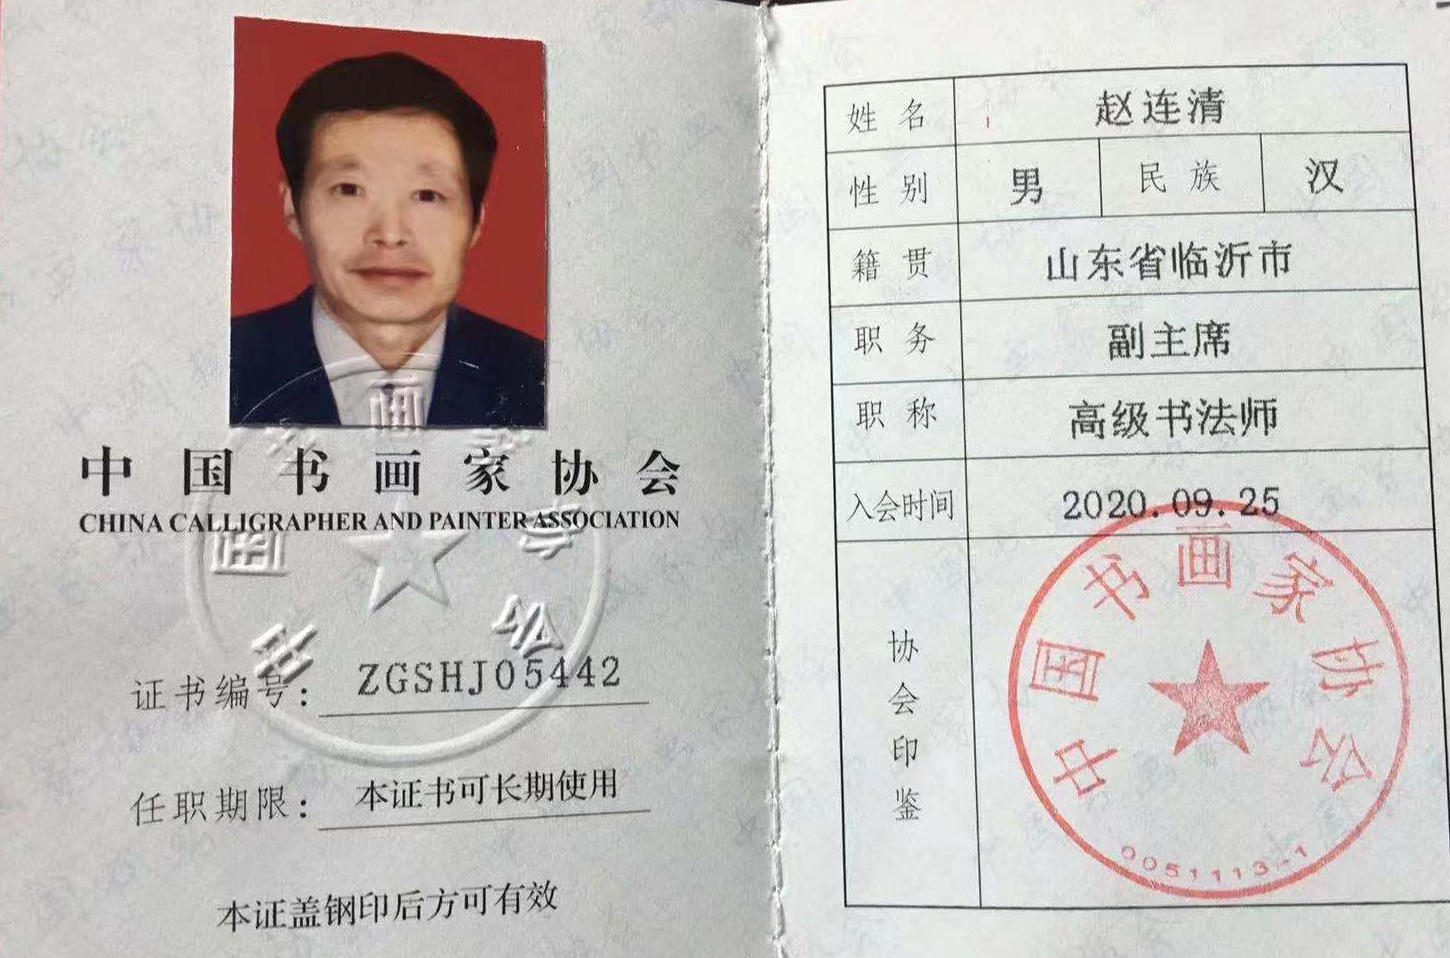 中国书画家协会
CHINA CALLIGRAPHER AND PAINTER ASSOCIATION
证书编号: ZGSHJ05442
任职期限: 本证书可长期使用
本证盖钢印后方可有效
姓名 赵连清
性别 男 民族 汉
籍贯 山东省临沂市
职务 副主席
职称 高级书法师
入会时间 2020.09.25
协会印鉴
中国书画家协会
0051113-1